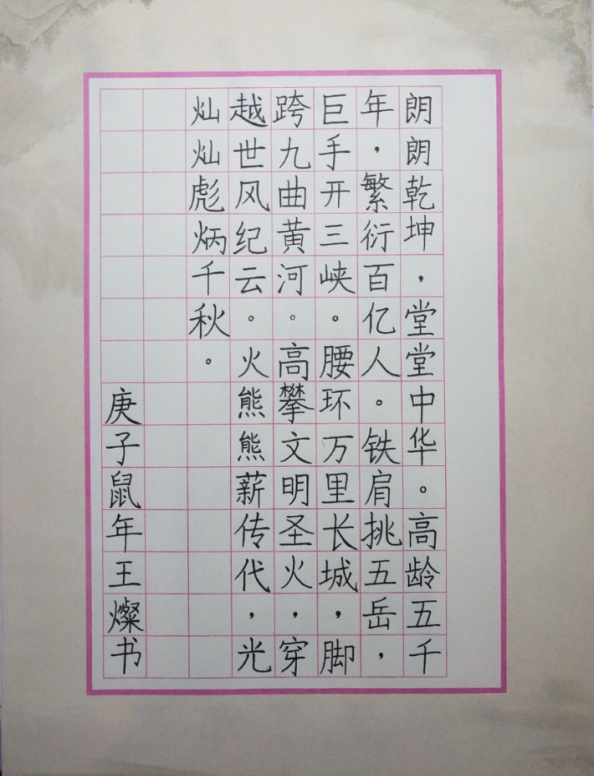 朗朗乾坤，堂堂中华。高龄五千
年，繁衍百亿人。铁肩挑五岳，
巨手开三峡。腰环万里长城，脚
跨九曲黄河。高攀文明圣火，穿
越世风纪云。火熊熊薪传代，光
灿灿彪炳千秋。
庚子鼠年王燦书